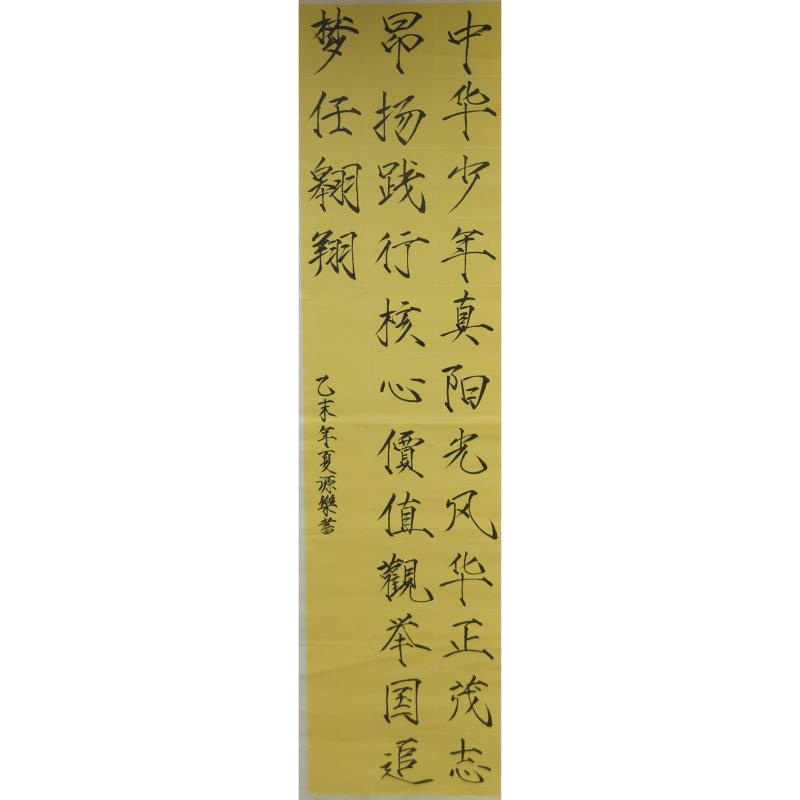 中华少年真阳光风华正茂志
昂扬践行核心價值觀举国追
梦任翱翔
乙未年夏源樂書